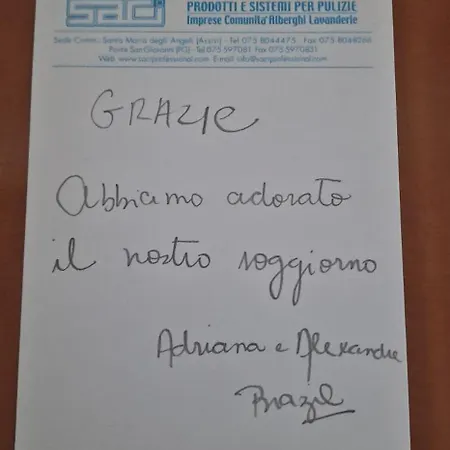 saci
PRODOTTI E SISTEMI PER PULIZIE
Imprese Comunita' Alberghi Lavanderie
Sede Comm.: Santa Maria degli Angeli (Assisi) - Tel 075 8044475 Fax 075 8048266
Ponte San Giovanni (PG) - Tel 075 597081 Fax 075 5970831
Web: www.saciprofessional.com E-mail: info@saciprofessional.com
GRAZIE
Abbiamo adorato
il nostro soggiorno
Adriana e Alexandre
Brazil